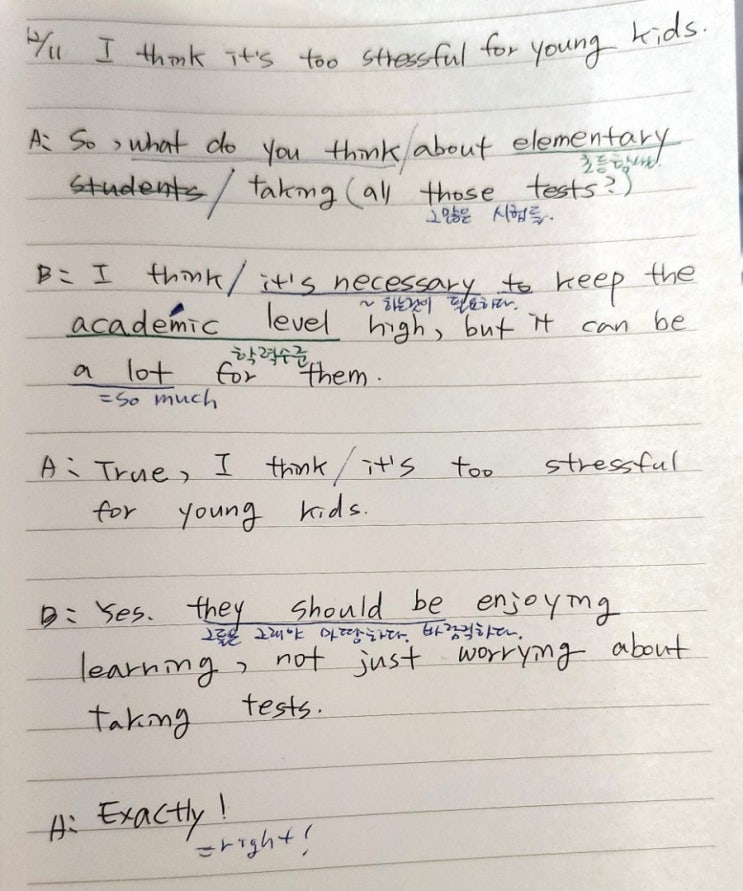 12/11 I think it's too stressful for young kids.
A: So, what do you think / about elementary
초등학생
students / taking (all those tests?)
그 많은 시험들.
B: I think / it's necessary to keep the
~ 하는것이 필요하다.
academic level high, but it can be
학력수준
a lot for them.
= so much
A: True, I think / it's too stressful
for young kids.
B: Yes. they should be enjoying
그들은 그래야 마땅하다. 바람직하다.
learning, not just worrying about
taking tests.
A: Exactly!
= right!